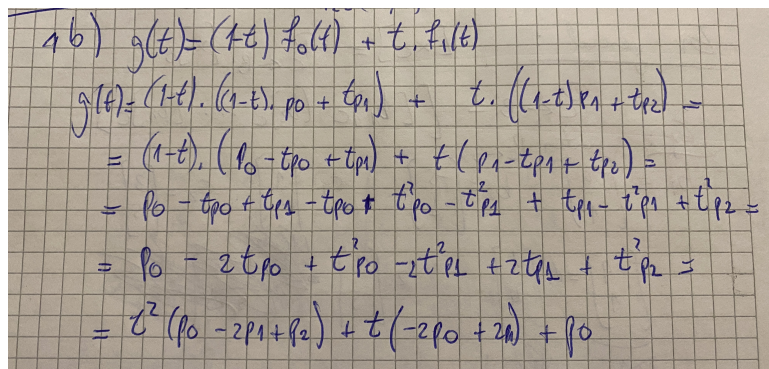 1b) g(t) = (1-t) f₀(t) + t. f₁(t)
g(t) = (1-t). ((1-t). p0 + tp1) + t. ((1-t)p1 + tp2) =
= (1-t). (p0 - tp0 + tp1) + t(p1 - tp1 + tp2) =
= p0 - tp0 + tp1 - tp0 + t²p0 - t²p1 + tp1 - t²p1 + t²p2 =
= p0 - 2tp0 + t²p0 - 2t²p1 + 2tp1 + t²p2 =
= t²(p0 - 2p1 + p2) + t(-2p0 + 2p1) + p0